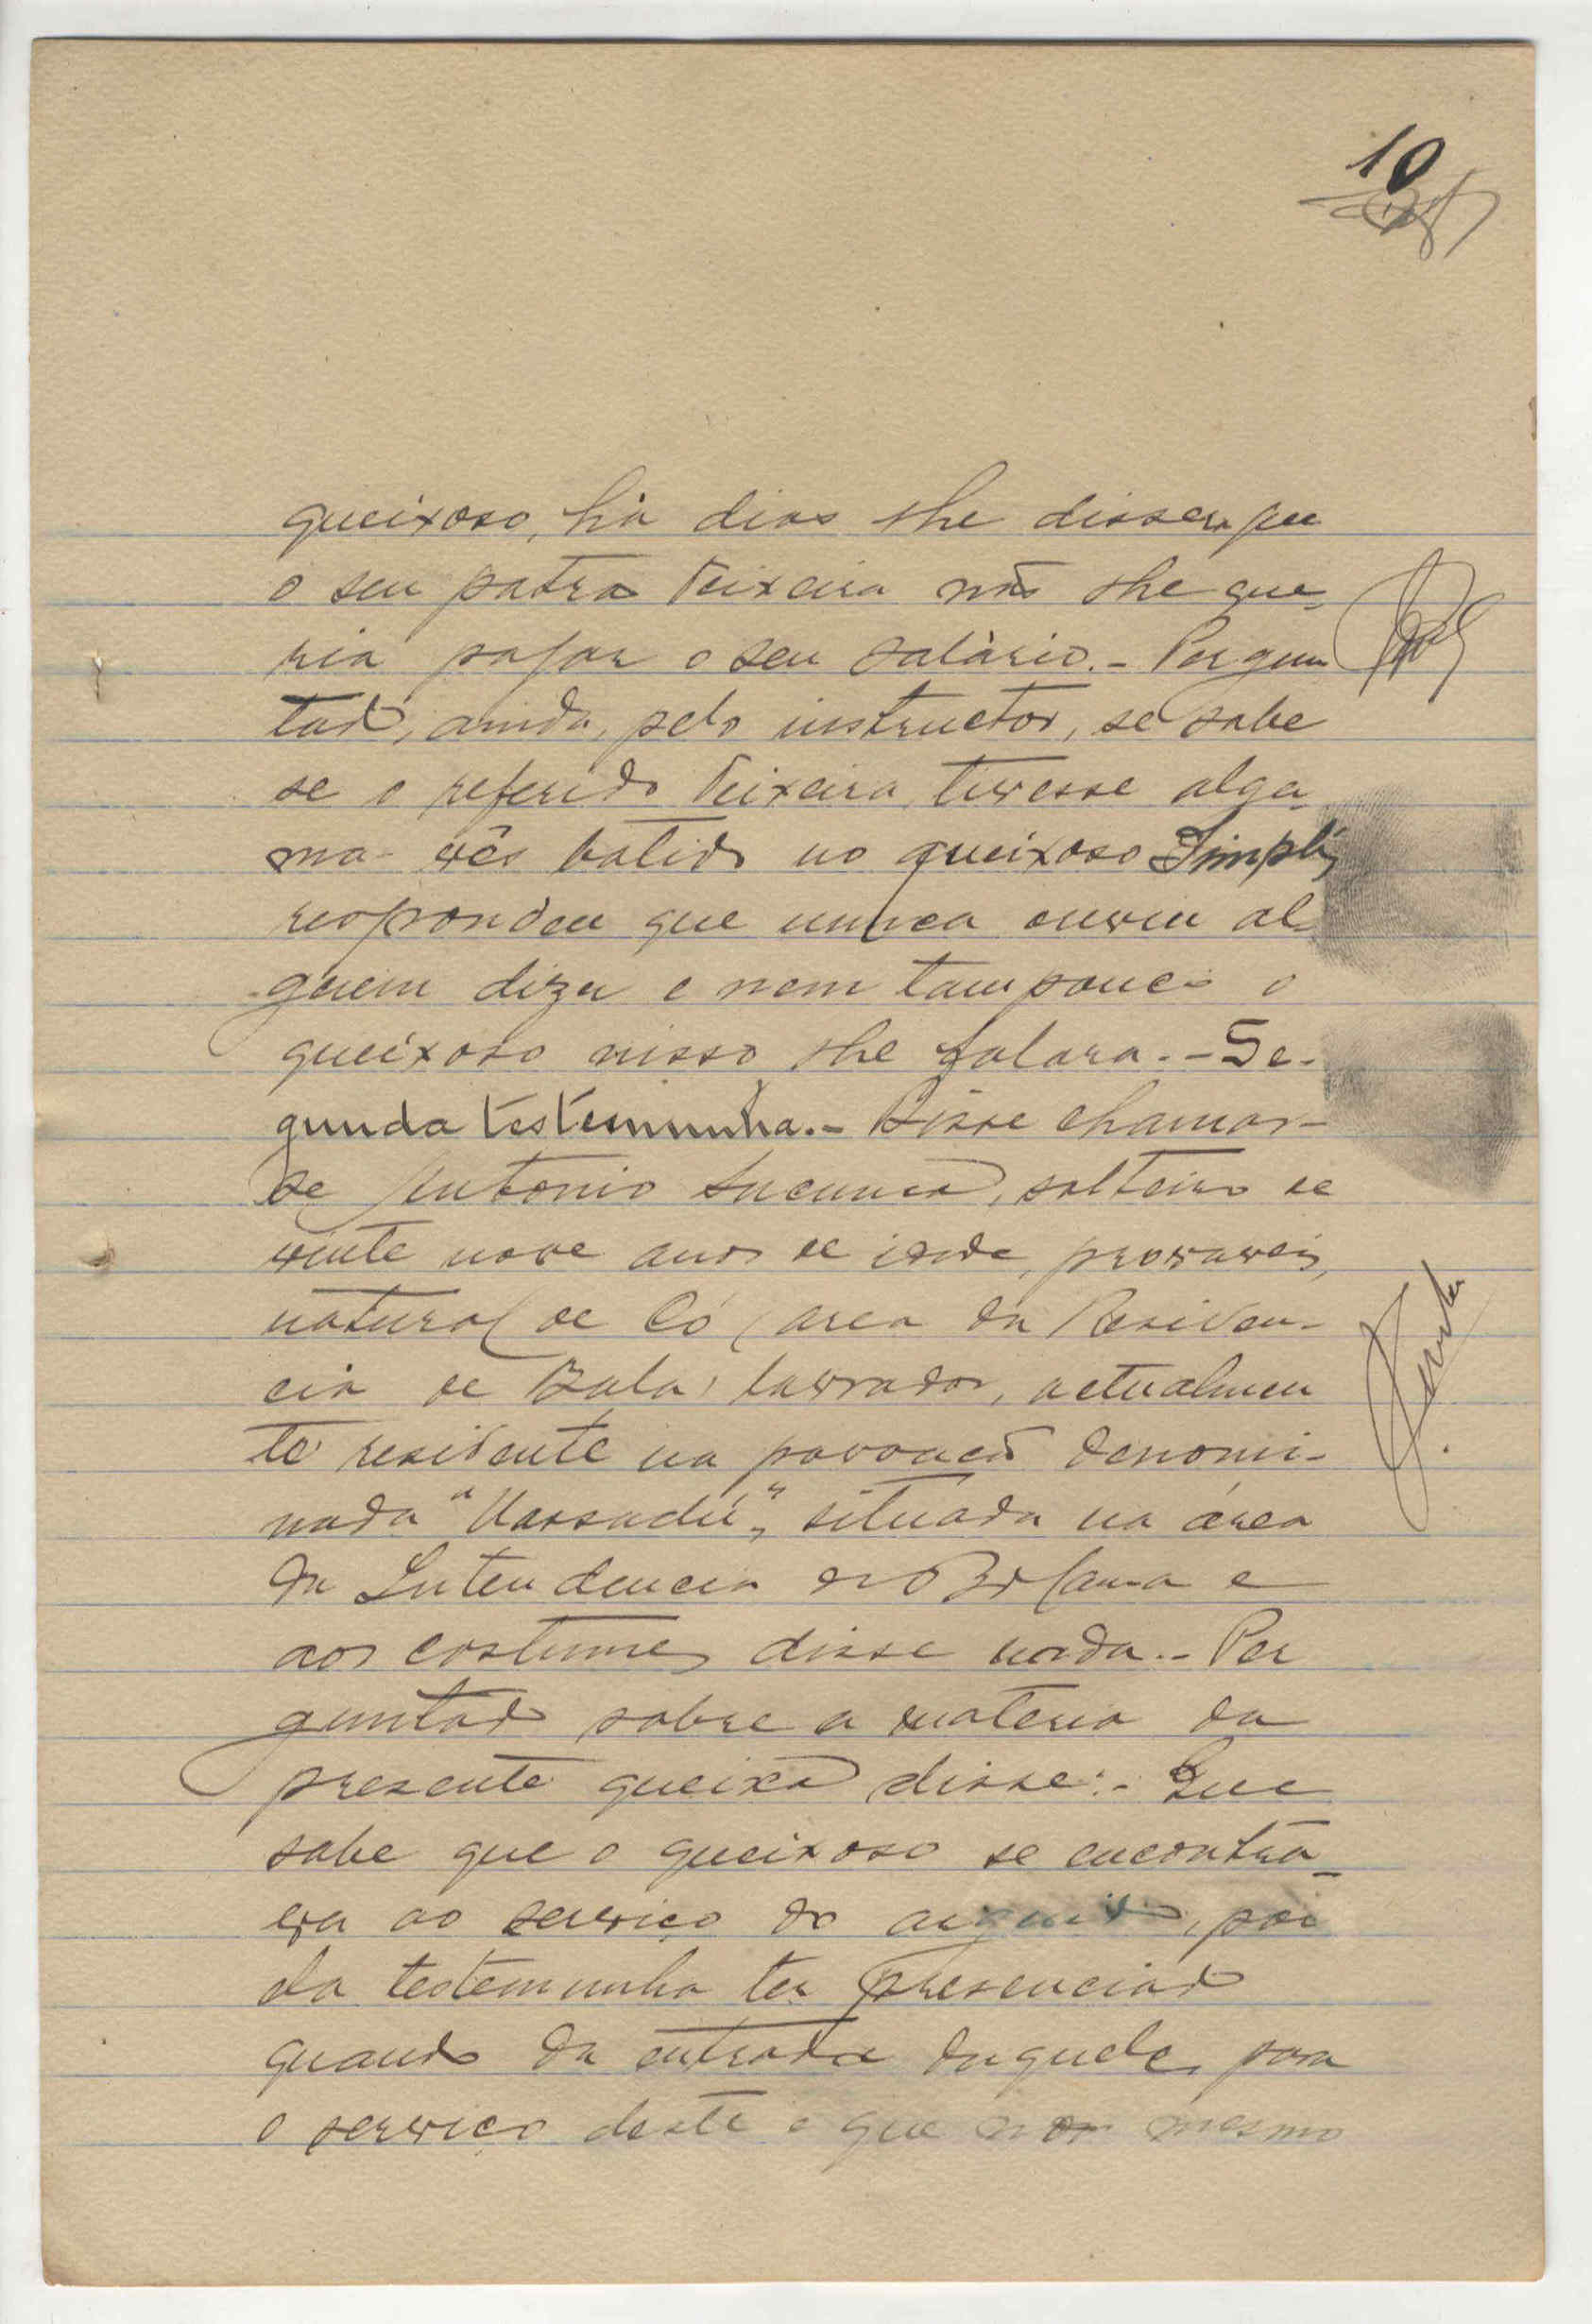 10
queixoso, há dias lhe dissera que
o seu patrão Teixeira não lhe que-
ria pagar o seu salário.- Pergun
tado, ainda, pelo instructor, se sabe
se o referido Teixeira tivesse algu-
ma vês batido no queixoso
respondeu que nunca ouviu al-
guem dizer e nem tampouco o
queixoso nisso lhe falara.- Se-
gunda testemunha.- Disse chamar-
se Antonio, solteiro de
vinte nove anos de idade, provaveis,
natural de Có, area da Residen-
cia de Bula, lavrador, actualmen
te residente na povoação denomi-
nada situada na área
da Intendencia de Bolama e
aos costumes disse nada.- Per
guntado sobre a materia da
presente queixa disse:- Que
sabe que o queixoso se encontra-
va ao serviço do arguido, por
da testemunha ter presenciado
quando da entrada daquele para
o serviço deste e que mesmo